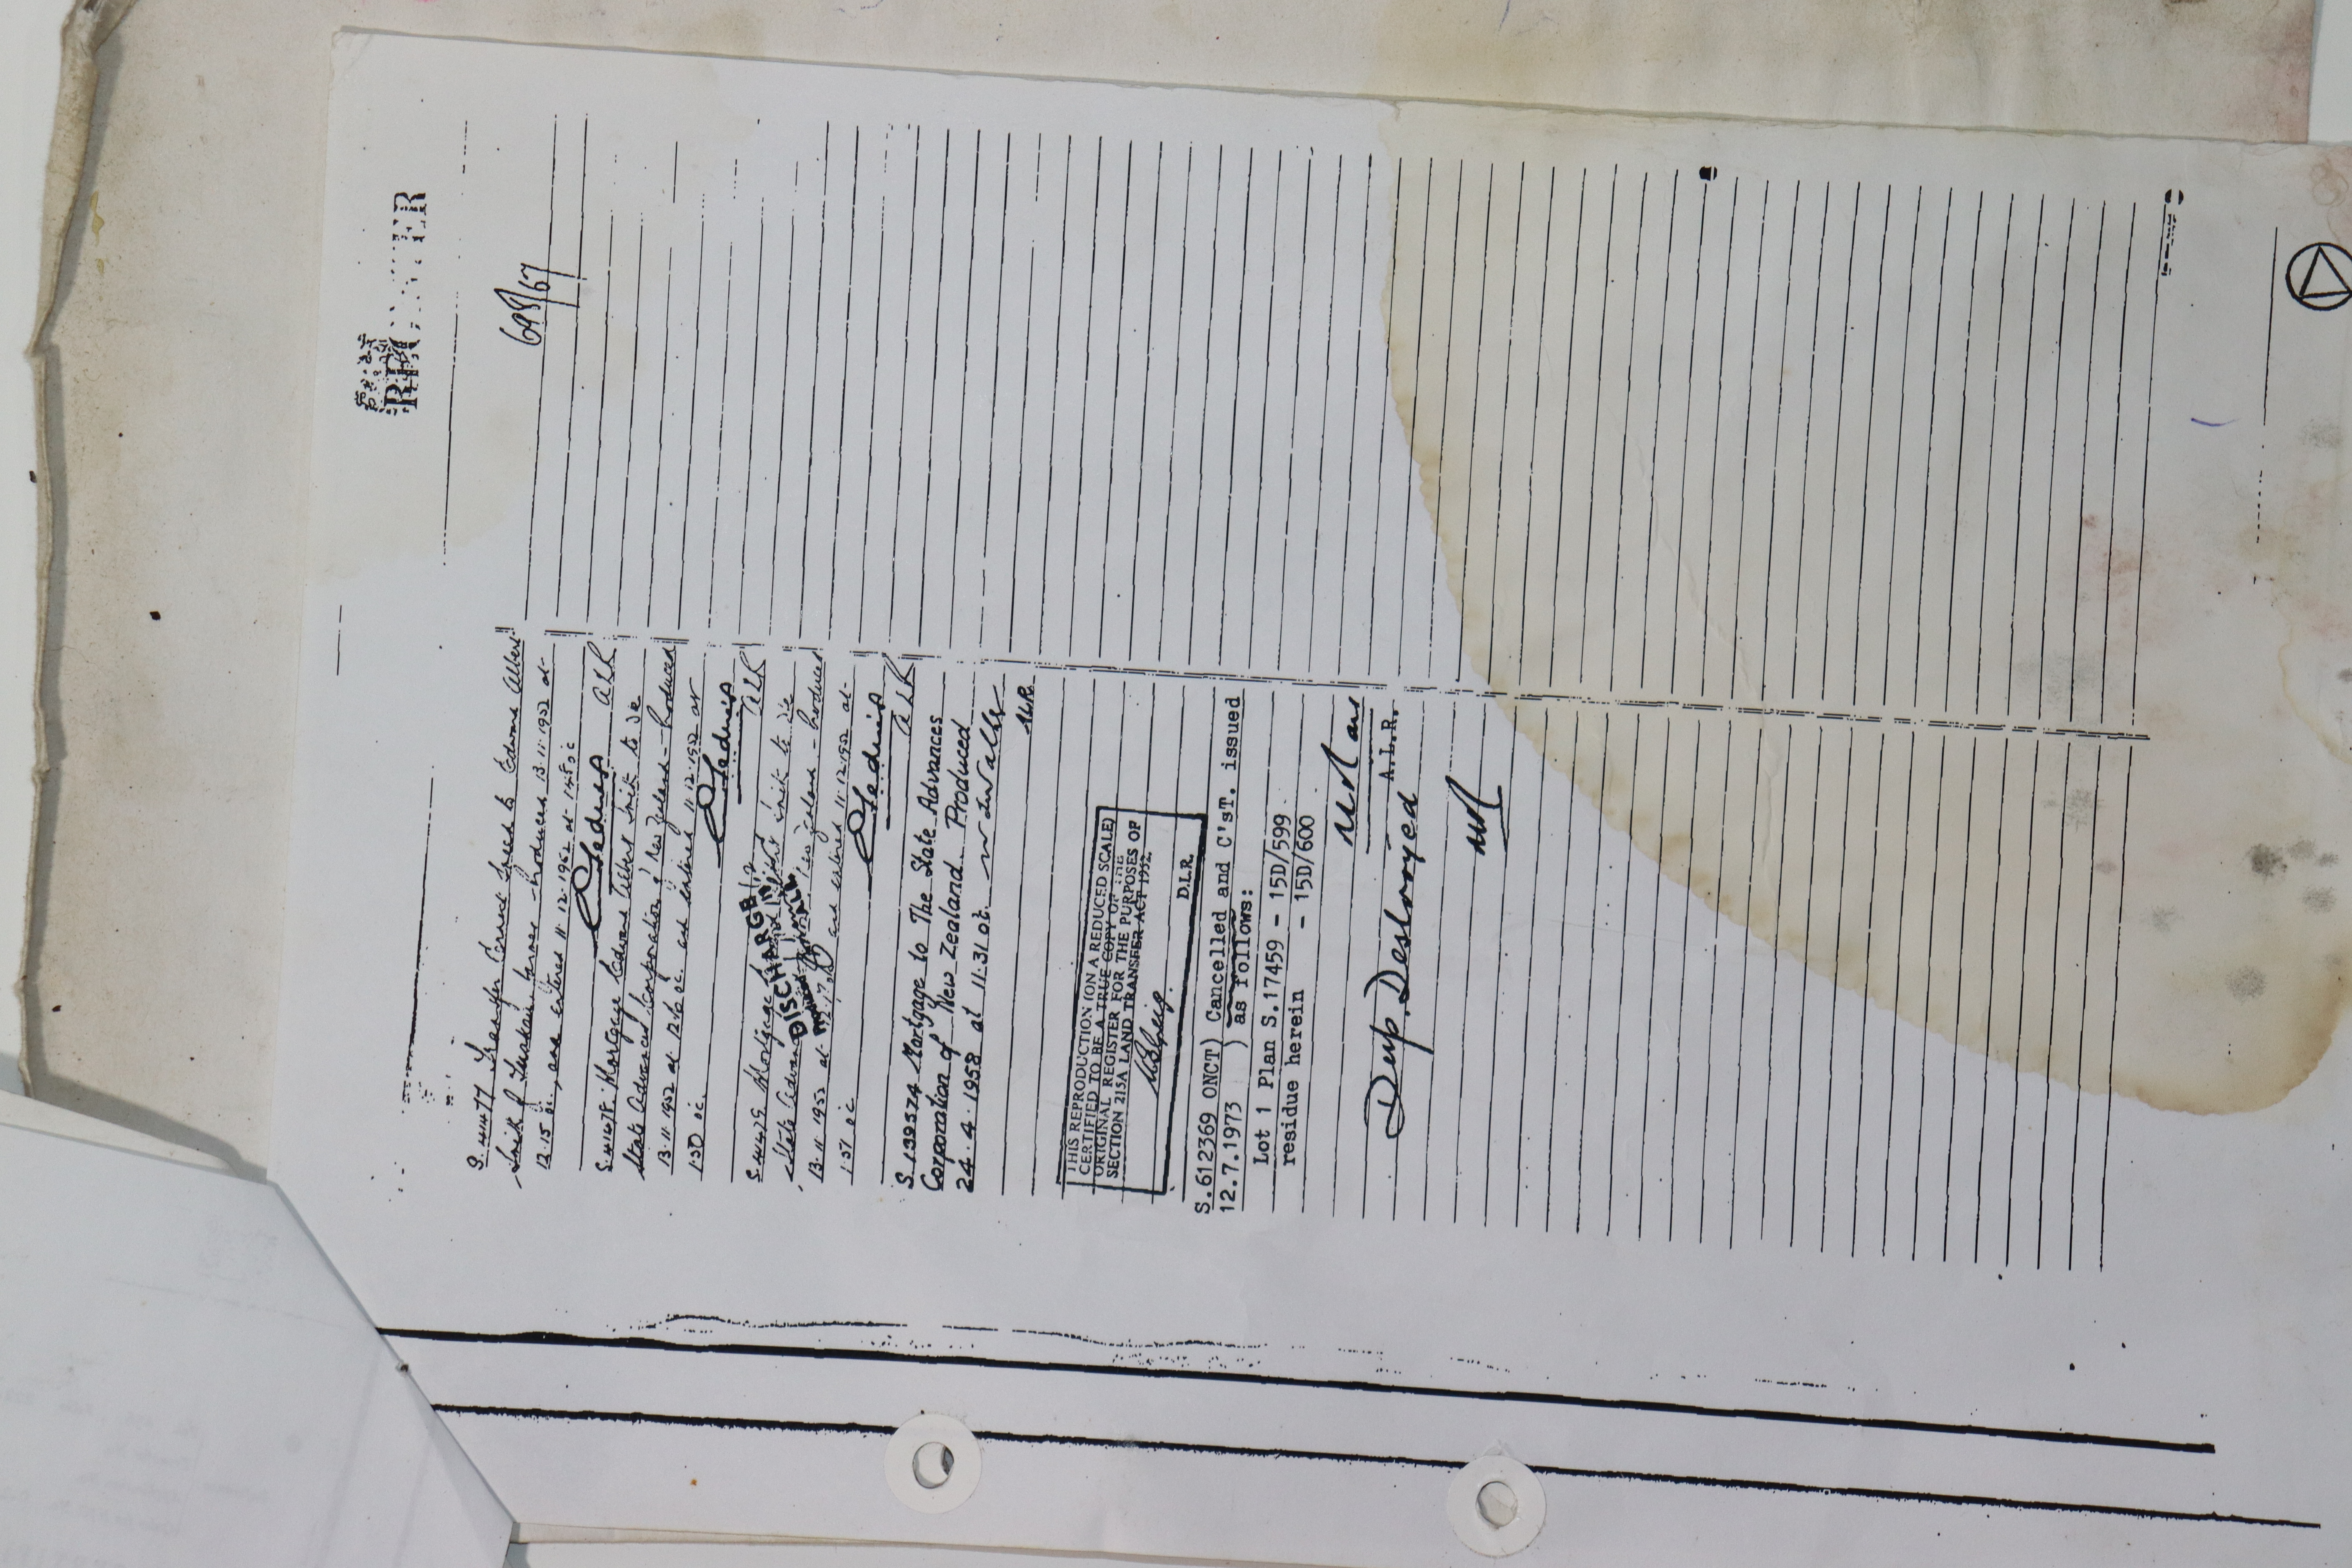 REGISTER
698/67
S.41477 Transfer Ernest Fred to Edward Albert
Smith of Tuakau farmer – Produced 13.11.1952 at
12.15 oc. and entered 11.12.1952 at oc
ALR
S.41478 Mortgage Edward Albert Smith to The
State Advances Corporation of New Zealand – Produced
13.11.1952 at 12.16 oc. and entered 11.12.1952 at
1.50 oc.
ALR
S.41479 Mortgage Smith to The
State Advances New Zealand – Produced
13.11.1952 at and entered 11.12.1952 at
1.51 oc
DISCHARGED
ALR
S.139574 Mortgage to The State Advances
Corporation of New Zealand Produced
24.4.1958 at 11.31 oc.
ALR
THIS REPRODUCTION (ON A REDUCED SCALE)
CERTIFIED TO BE A TRUE COPY OF THE
ORIGINAL REGISTER FOR THE PURPOSES OF
SECTION 215A LAND TRANSFER ACT 1952.
D.L.R.
S.612369 ONCT) Cancelled and C'sT. issued
12.7.1973 ) as follows:
Lot 1 Plan S.17459 - 15D/599
residue herein - 15D/600
A.L.R.
Dup. Destroyed